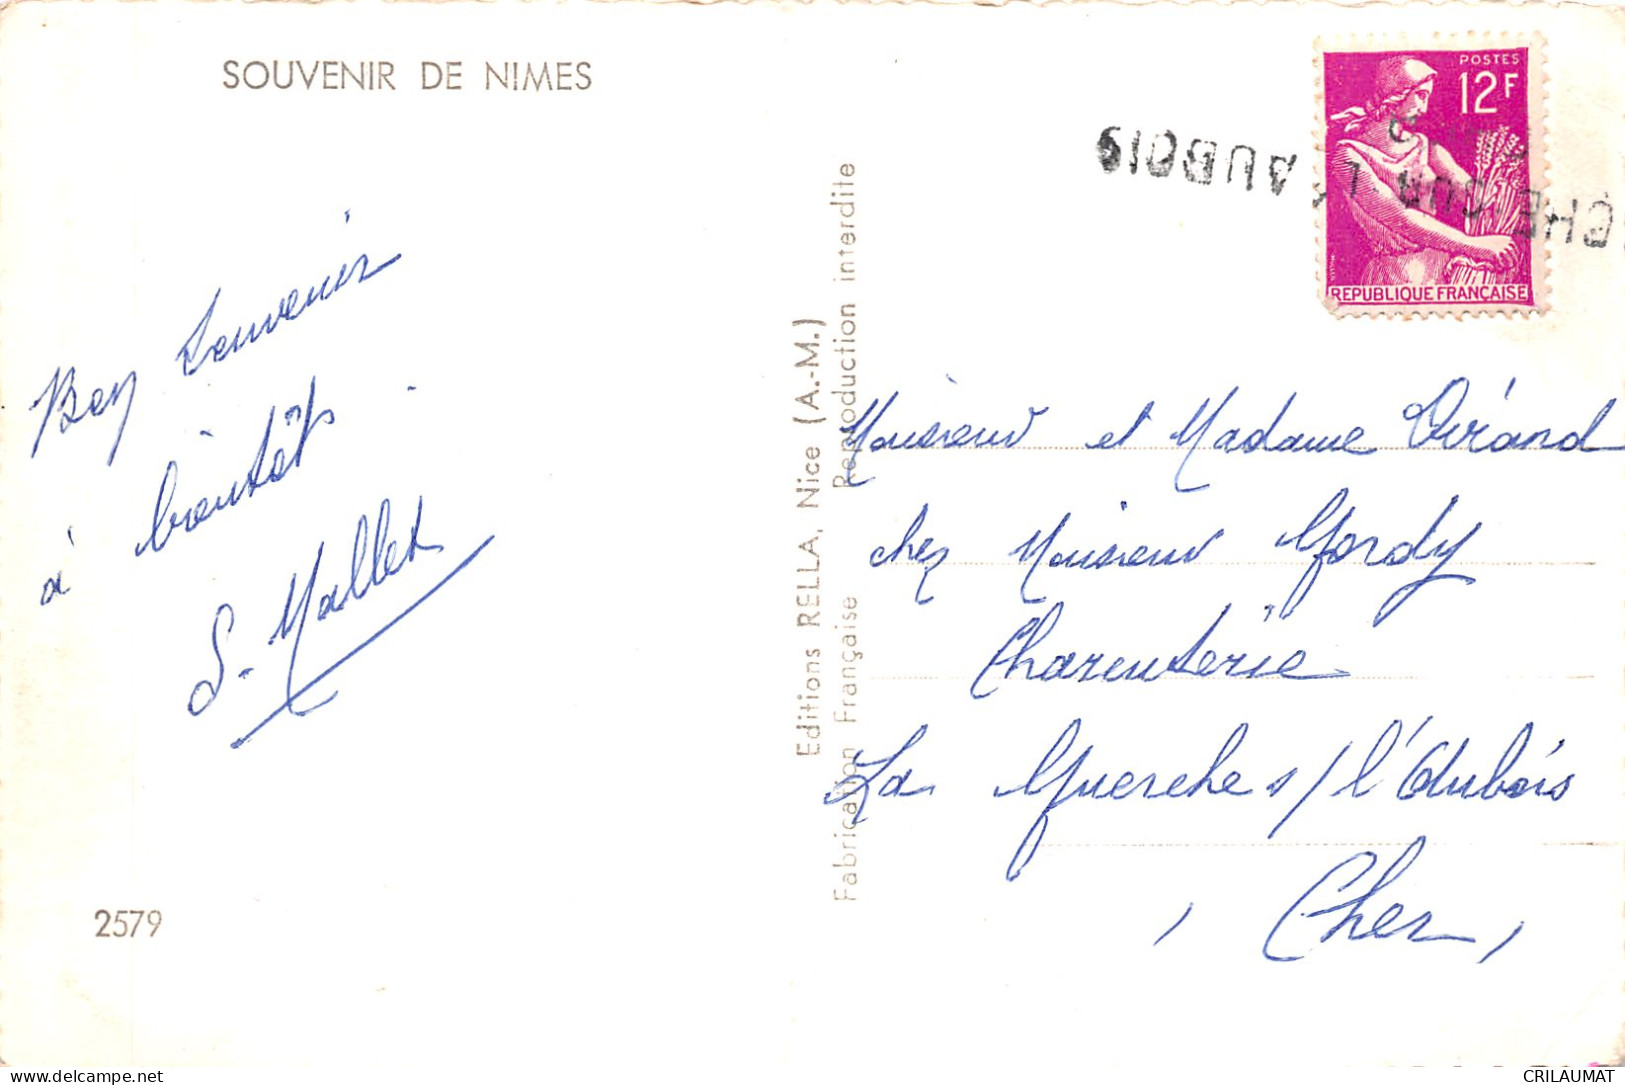 SOUVENIR DE NIMES
Bon Souvenir
à bientôt
S. Mallet
2579
Editions RELLA, Nice (A.-M.)
Fabrication Française Reproduction interdite
POSTES
12F
REPUBLIQUE FRANÇAISE
CHE SUR L'AUBOIS
Monsieur et Madame
chez Monsieur
Charcuterie
La Guerche s/l'Aubois
(Cher)
CRILAUMAT